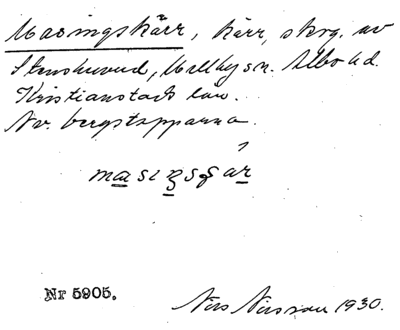 Masingskärr, kärr, skog. av
Stenshuvud, Mellby sn. Albo hd.
Kristianstads län.
Nv. bergstopparna.
Nr 5905.
Nils Nilsson 1930.